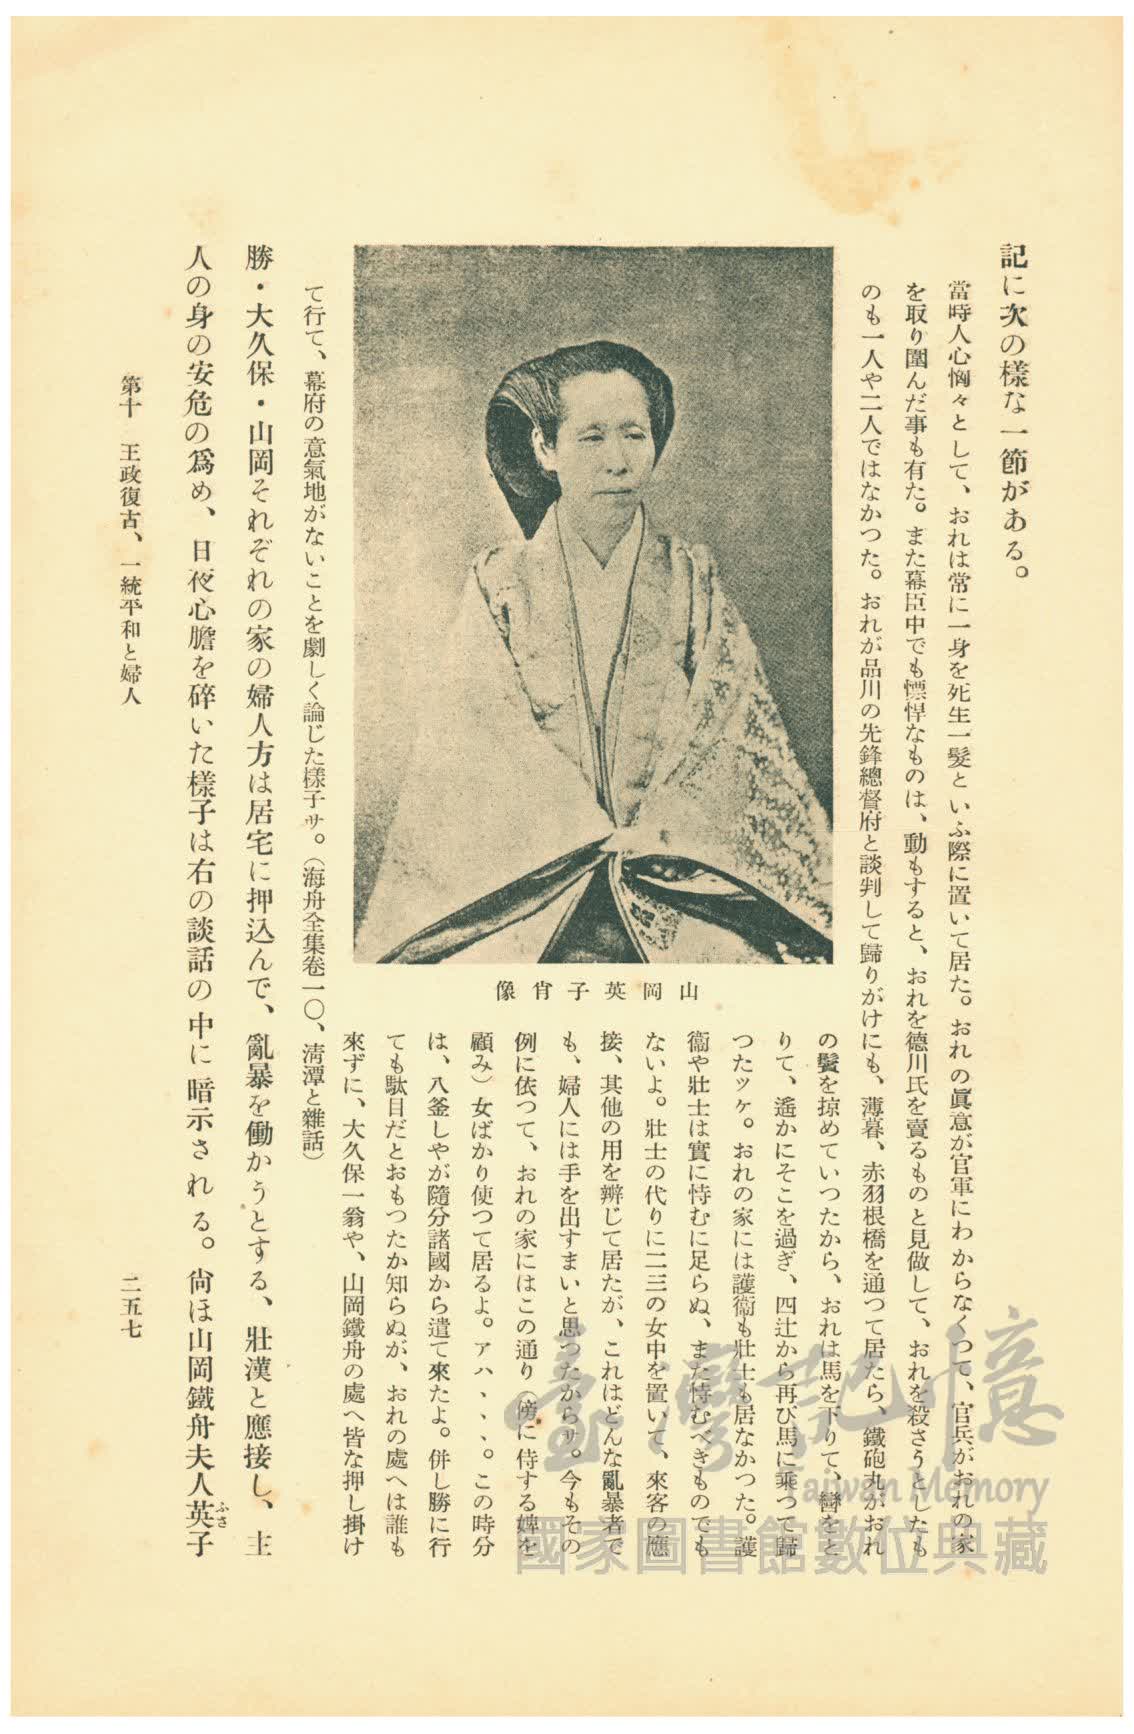 記に次の樣な一節がある。
當時人心恟々として、おれは常に一身を死生一髮といふ際に置いて居た。おれの眞意が官軍にわからなくつて、官兵がおれの家
を取り圍んだ事も有た。また幕臣中でも慓悍なものは、動もすると、おれを德川氏を賣るものと見做して、おれを殺さうとしたも
のも一人や二人ではなかつた。おれが品川の先鋒總督府と談判して歸りがけにも、薄暮、赤羽根橋を通つて居たら、鐵砲丸がおれ
の鬢を掠めていつたから、おれは馬を下りて、轡をと
りて、遙かにそこを過ぎ、四辻から再び馬に乘つて歸
つたッケ。おれの家には護衞も壯士も居なかつた。護
衞や壯士は實に恃むに足らぬ、また恃むべきものでも
ないよ。壯士の代りに二三の女中を置いて、來客の應
接、其他の用を辨じて居たが、これはどんな亂暴者で
も、婦人には手を出すまいと思つたからサ。今もその
例に依つて、おれの家にはこの通り（傍に侍する婢を
顧み）女ばかり使つて居るよ。アハ、、、。この時分
は、八釜しやが隨分諸國から遣て來たよ。併し勝に行
ても駄目だとおもつたか知らぬが、おれの處へは誰も
來ずに、大久保一翁や、山岡鐵舟の處へ皆な押し掛け
山岡英子肖像
て行て、幕府の意氣地がないことを劇しく論じた樣子サ。（海舟全集卷一〇、淸潭と雜話）
勝・大久保・山岡それぞれの家の婦人方は居宅に押込んで、亂暴を働かうとする、壯漢と應接し、主
人の身の安危の爲め、日夜心膽を碎いた樣子は右の談話の中に暗示される。尙ほ山岡鐵舟夫人英子
ふさ
第十　王政復古、一統平和と婦人
二五七
臺灣記憶
Taiwan Memory
國家圖書館數位典藏